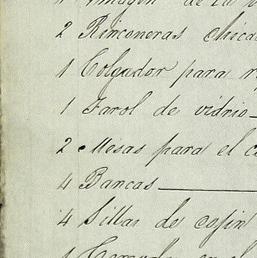 1 Imagen de la
2 Rinconeras chica
1 Colgador para r
1 Farol de vidrio
2 Mesas para el c
4 Bancas
4 Sillas de cojin
1